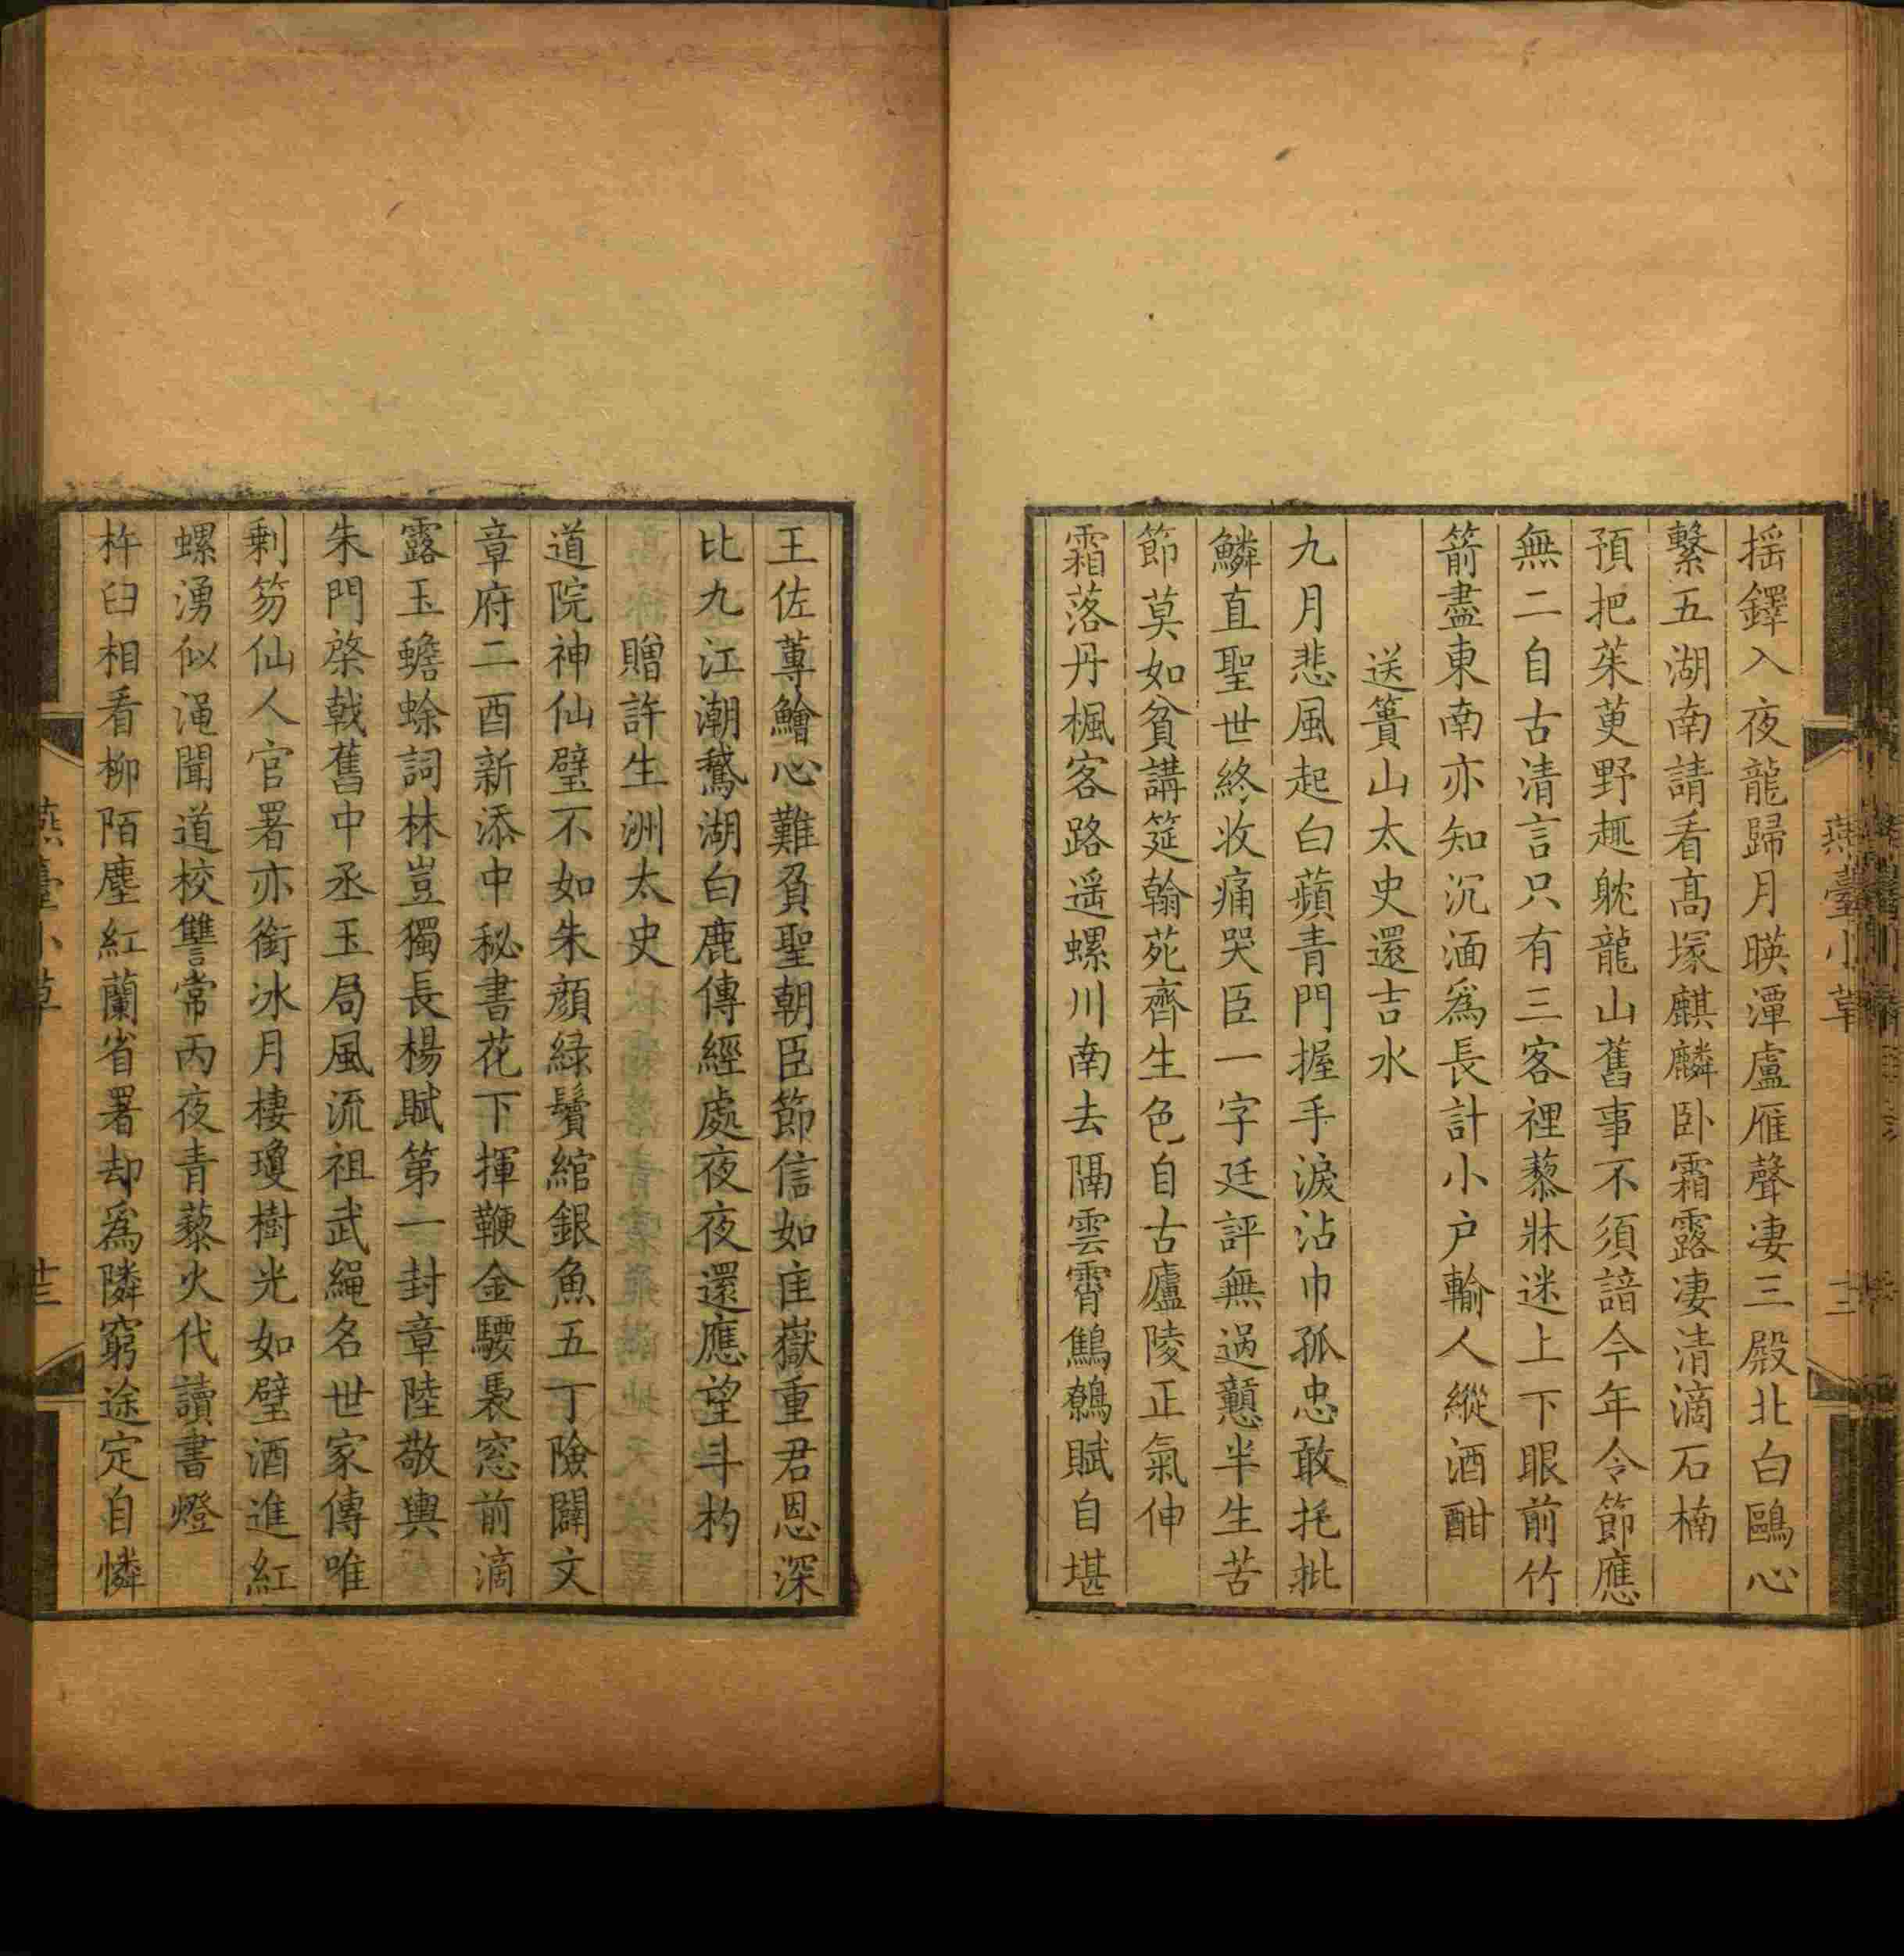 搖鐸入夜龍歸月暎潭盧雁聲凄三殿北白鷗心
繫五湖南請看髙塚麒麟卧霜露凄清滴石楠
預把茱萸野趣躭龍山舊事不須諳今年令節應
無二自古清言只有三客裡藜牀迷上下眼前竹
箭盡東南亦知沉湎爲長計小户輸人縱酒酣
送簣山太史還吉水
九月悲風起白蘋青門握手淚沾巾孤忠敢抚批
鱗直聖世終收痛哭臣一字廷評無過戇半生苦
節莫如貧講筵翰苑齊生色自古廬陵正氣伸
霜落丹楓客路遥螺川南去隔雲霄鷦鷯賦自堪
燕臺小草
十二
王佐蓴鱠心難負聖朝臣節信如𨓏嶽重君恩深
比九江潮鵞湖白鹿傳經處夜夜還應望斗杓
贈許生洲太史
道院神仙璧不如朱顔緑鬢綰銀魚五丁險闢文
章府二酉新添中秘書花下揮鞭金騕褭窓前滴
露玉蟾蜍詞林豈獨長楊賦第一封章陸敬輿
朱門棨戟舊中丞玉局風流祖武繩名世家傳唯
剩笏仙人官署亦銜冰月棲瓊樹光如璧酒進紅
螺湧似澠聞道校讐常丙夜青藜火代讀書燈
杵臼相看柳陌塵紅蘭省署却爲隣窮途定自憐
燕臺小草
十三